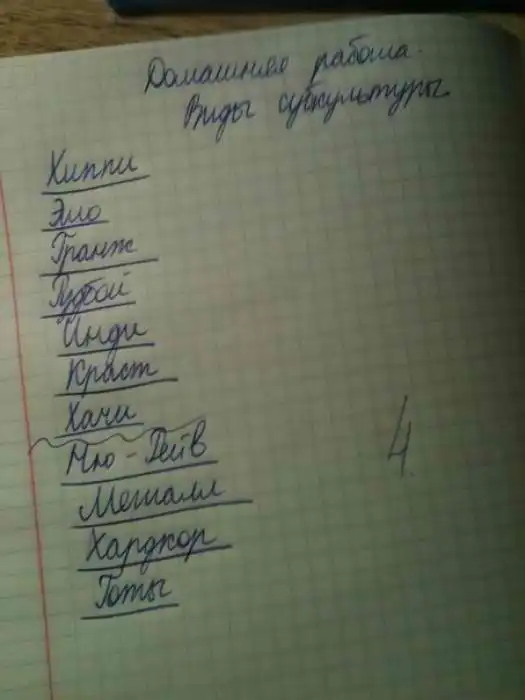 Домашняя работа.
Виды субкультуры
Хиппи
Эмо
Гранж
Рудбой
Инди
Краст
Хачи
Ню-Вейв
Металл
Хардкор
Готы
4